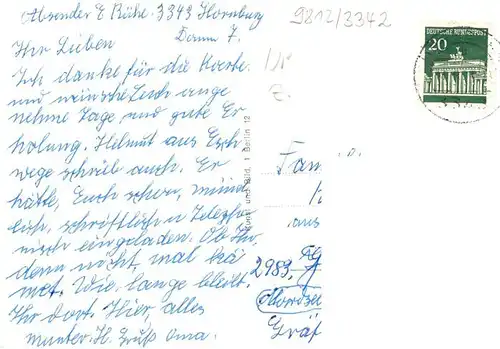 Absender E Rühe. 3343 Hornburg
Damm 7.
9812/3342
DEUTSCHE BUNDESPOST
20
Ihr Lieben
Ich danke für die Karte.
und wünsche Euch ange
nehme Tage und gute Er
holung. Helmut aus Esch
wege schrieb auch. Er
hätte, Euch schon, münd
lich, schriftlich u Telefo
nisch eingeladen. Ob Ihr
denn nicht, mal kä
met. Wie lange bleibt
Ihr dort. Hier, alles
munter. H. Gruß Oma.
und Bild, 1 Berlin 12
Fam
aus
2983,
Gräf